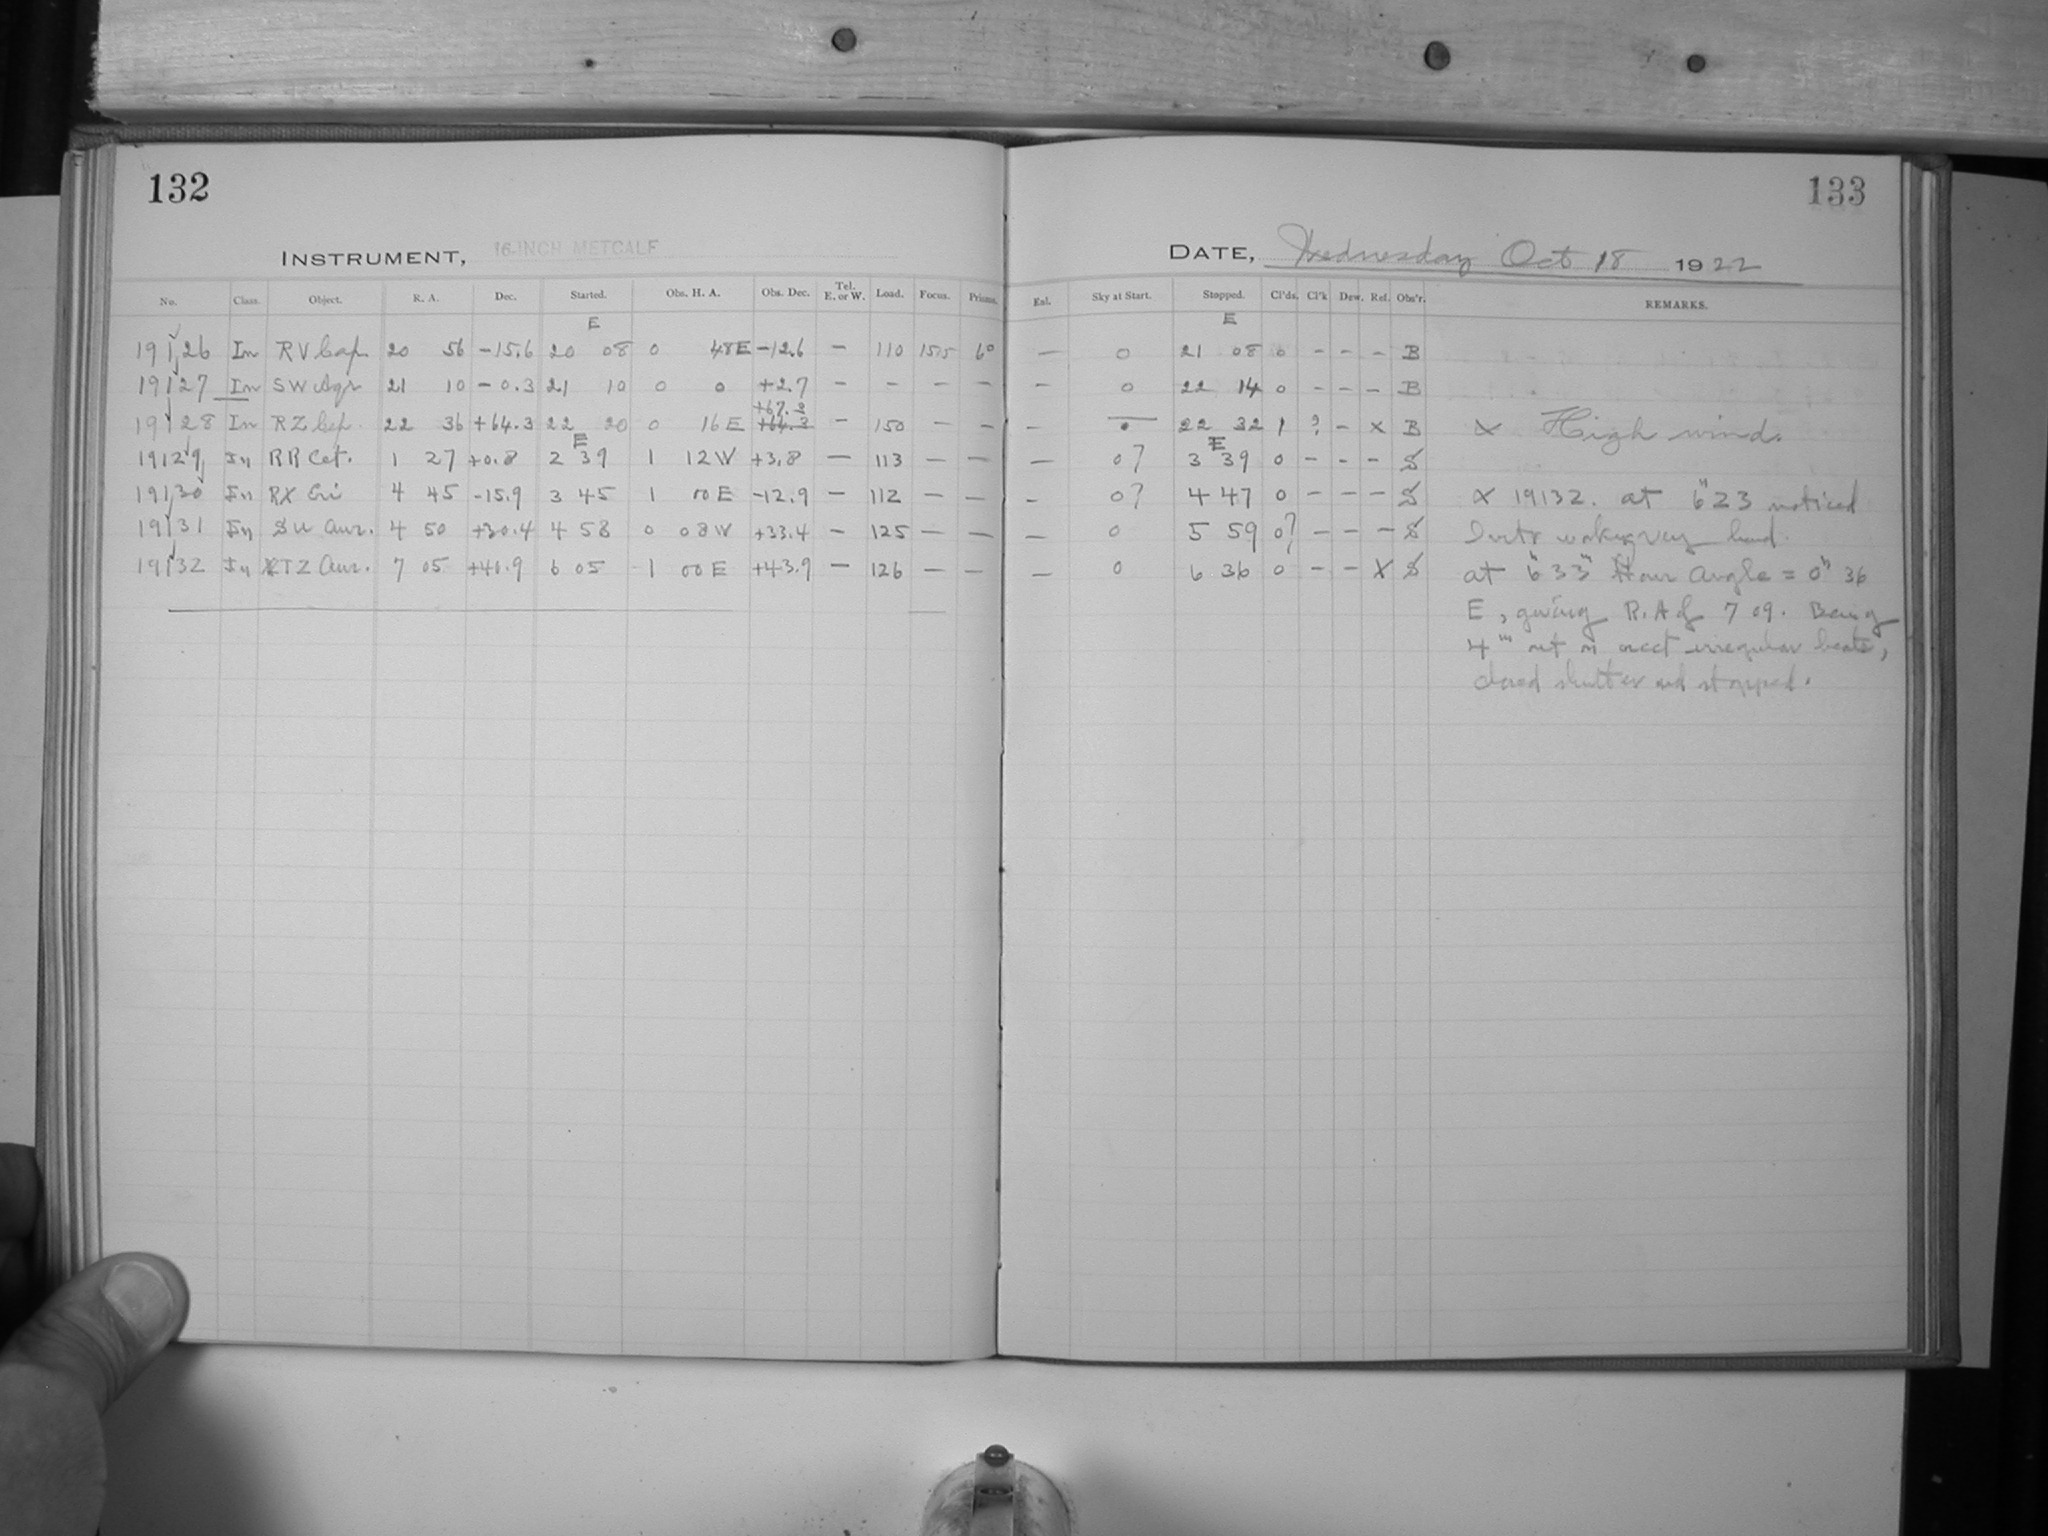 132
133
INSTRUMENT, 16-INCH METCALF
DATE, Wednesday Oct 18 1922
No. Class. Object. R. A. Dec. Started. Obs. H. A. Obs. Dec. Tel. E. or W. Load. Focus. Prisms. Eal. Sky at Start. Stopped. Cl'ds. Cl'k Dew. Ref. Obs'r. REMARKS.
E E
19126 In RV Cap. 20 56 -15.6 20 08 0 48E -12.6 - 110 15.5 6° - 0 21 08 0 - - - B
19127 In SW Aqr 21 10 -0.3 21 10 0 0 +2.7 - - - - - 0 22 14 0 - - - B
+67.3
19128 In RZ Cep. 22 36 +64.3 22 20 0 16E +64.3 - 150 - - - 22 32 1 ? - x B x High wind.
E E
19129 In RR Cet. 1 27 +0.8 2 39 1 12W +3.8 - 113 - - - 0? 3 39 0 - - - S
19130 In RX Eri 4 45 -15.9 3 45 1 00E -12.9 - 112 - - - 0? 4 47 0 - - - S x 19132. at 6h 23 noticed
19131 In SU Aur. 4 50 +30.4 4 58 0 08W +33.4 - 125 - - - 0 5 59 0? - - - S
19132 In TZ Aur. 7 05 +40.9 6 05 1 00E +43.9 - 126 - - - 0 6 36 0 - - x S at 6h 33m Hour Angle = 0h 36
E, giving R.A of 7 09. Being
4m out irregular beats,
closed shutter and stopped.